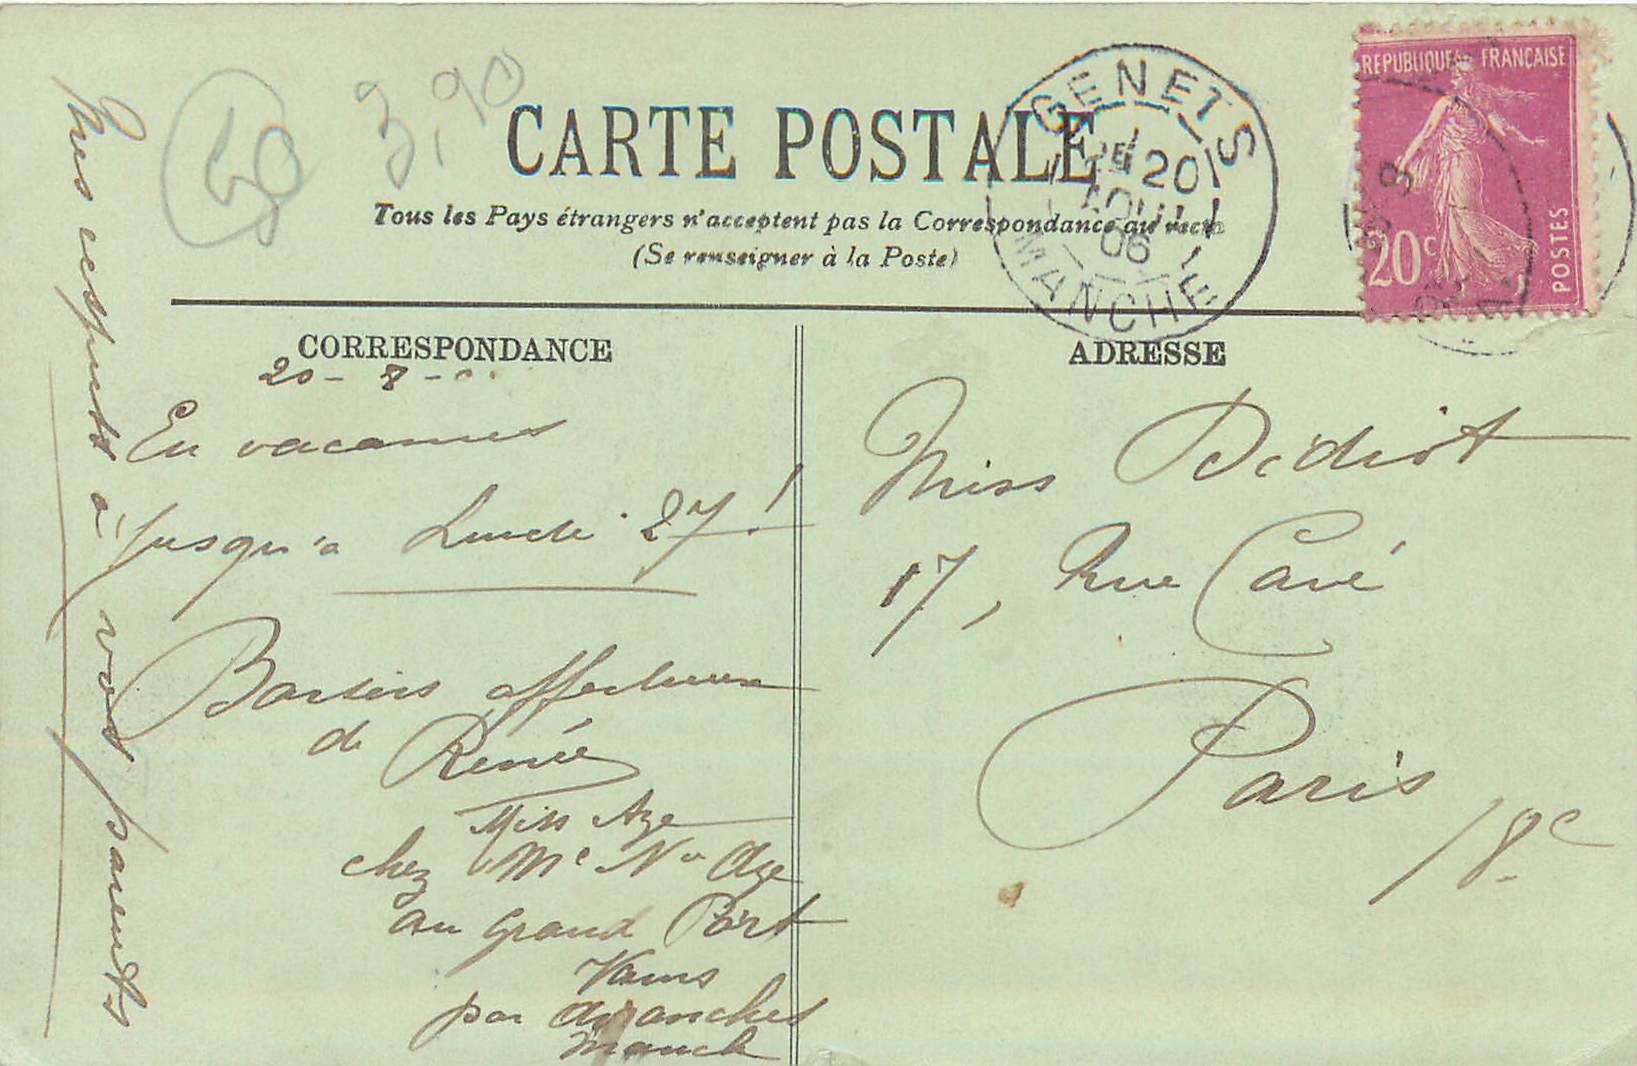 50
3,90
CARTE POSTALE
Tous les Pays étrangers n'acceptent pas la Correspondance au recto
(Se renseigner à la Poste)
GENETS
20
AOUT
06
MANCHE
REPUBLIQUE FRANÇAISE
20c
POSTES
CORRESPONDANCE
20 - 8 -
En vacances
jusqu'à Lundi 27!
Baisers affectueux
de Renée
Miss Aze
chez Me Aze
au grand Port
Vains
par Avranches
Manche
Mes respects à vos parents
ADRESSE
Miss Didiot
17, Rue Cavé
Paris
18e